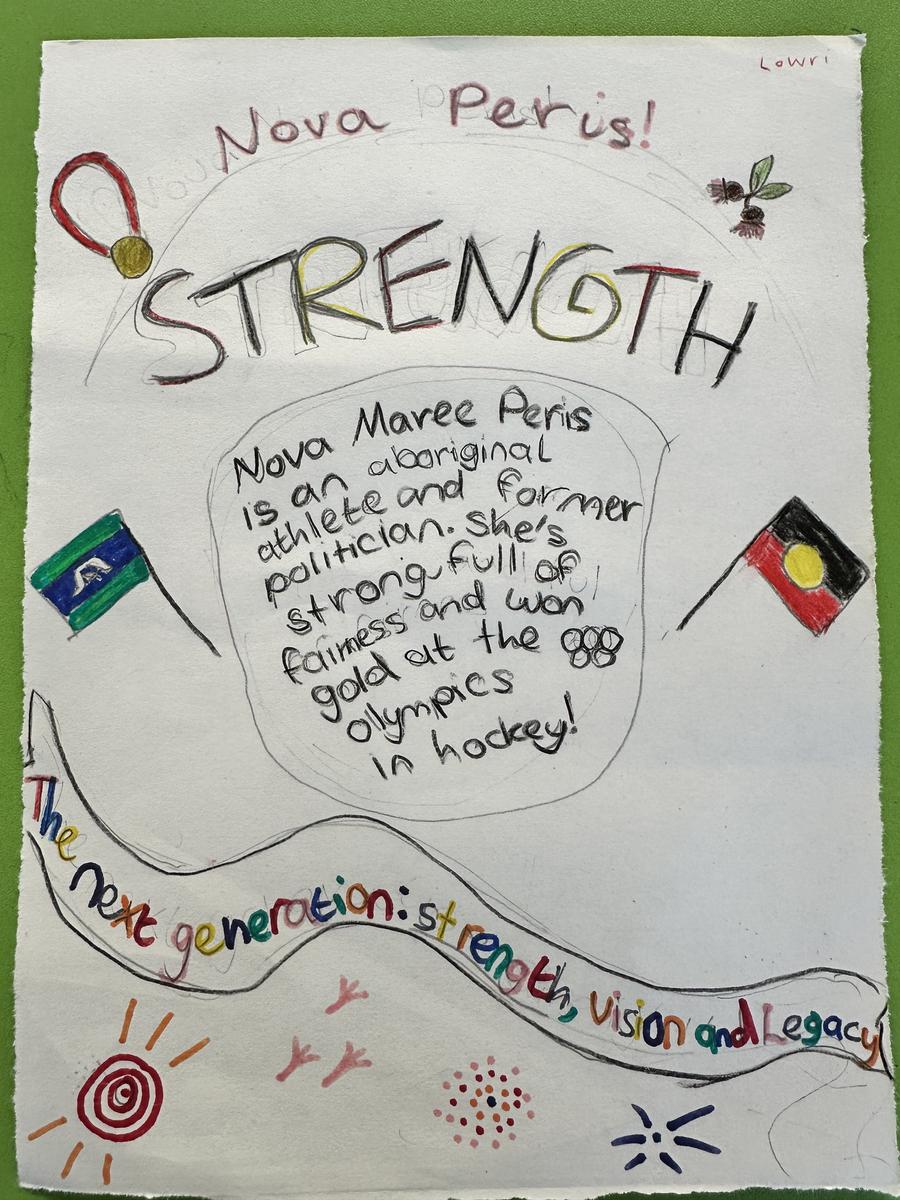 Lowri
Nova Peris!
STRENGTH
Nova Maree Peris
is an aboriginal
athlete and former
politician. She's
strong, full of
fairness and won
gold at the
olympics
in hockey!
The next generation: strength, vision and Legacy